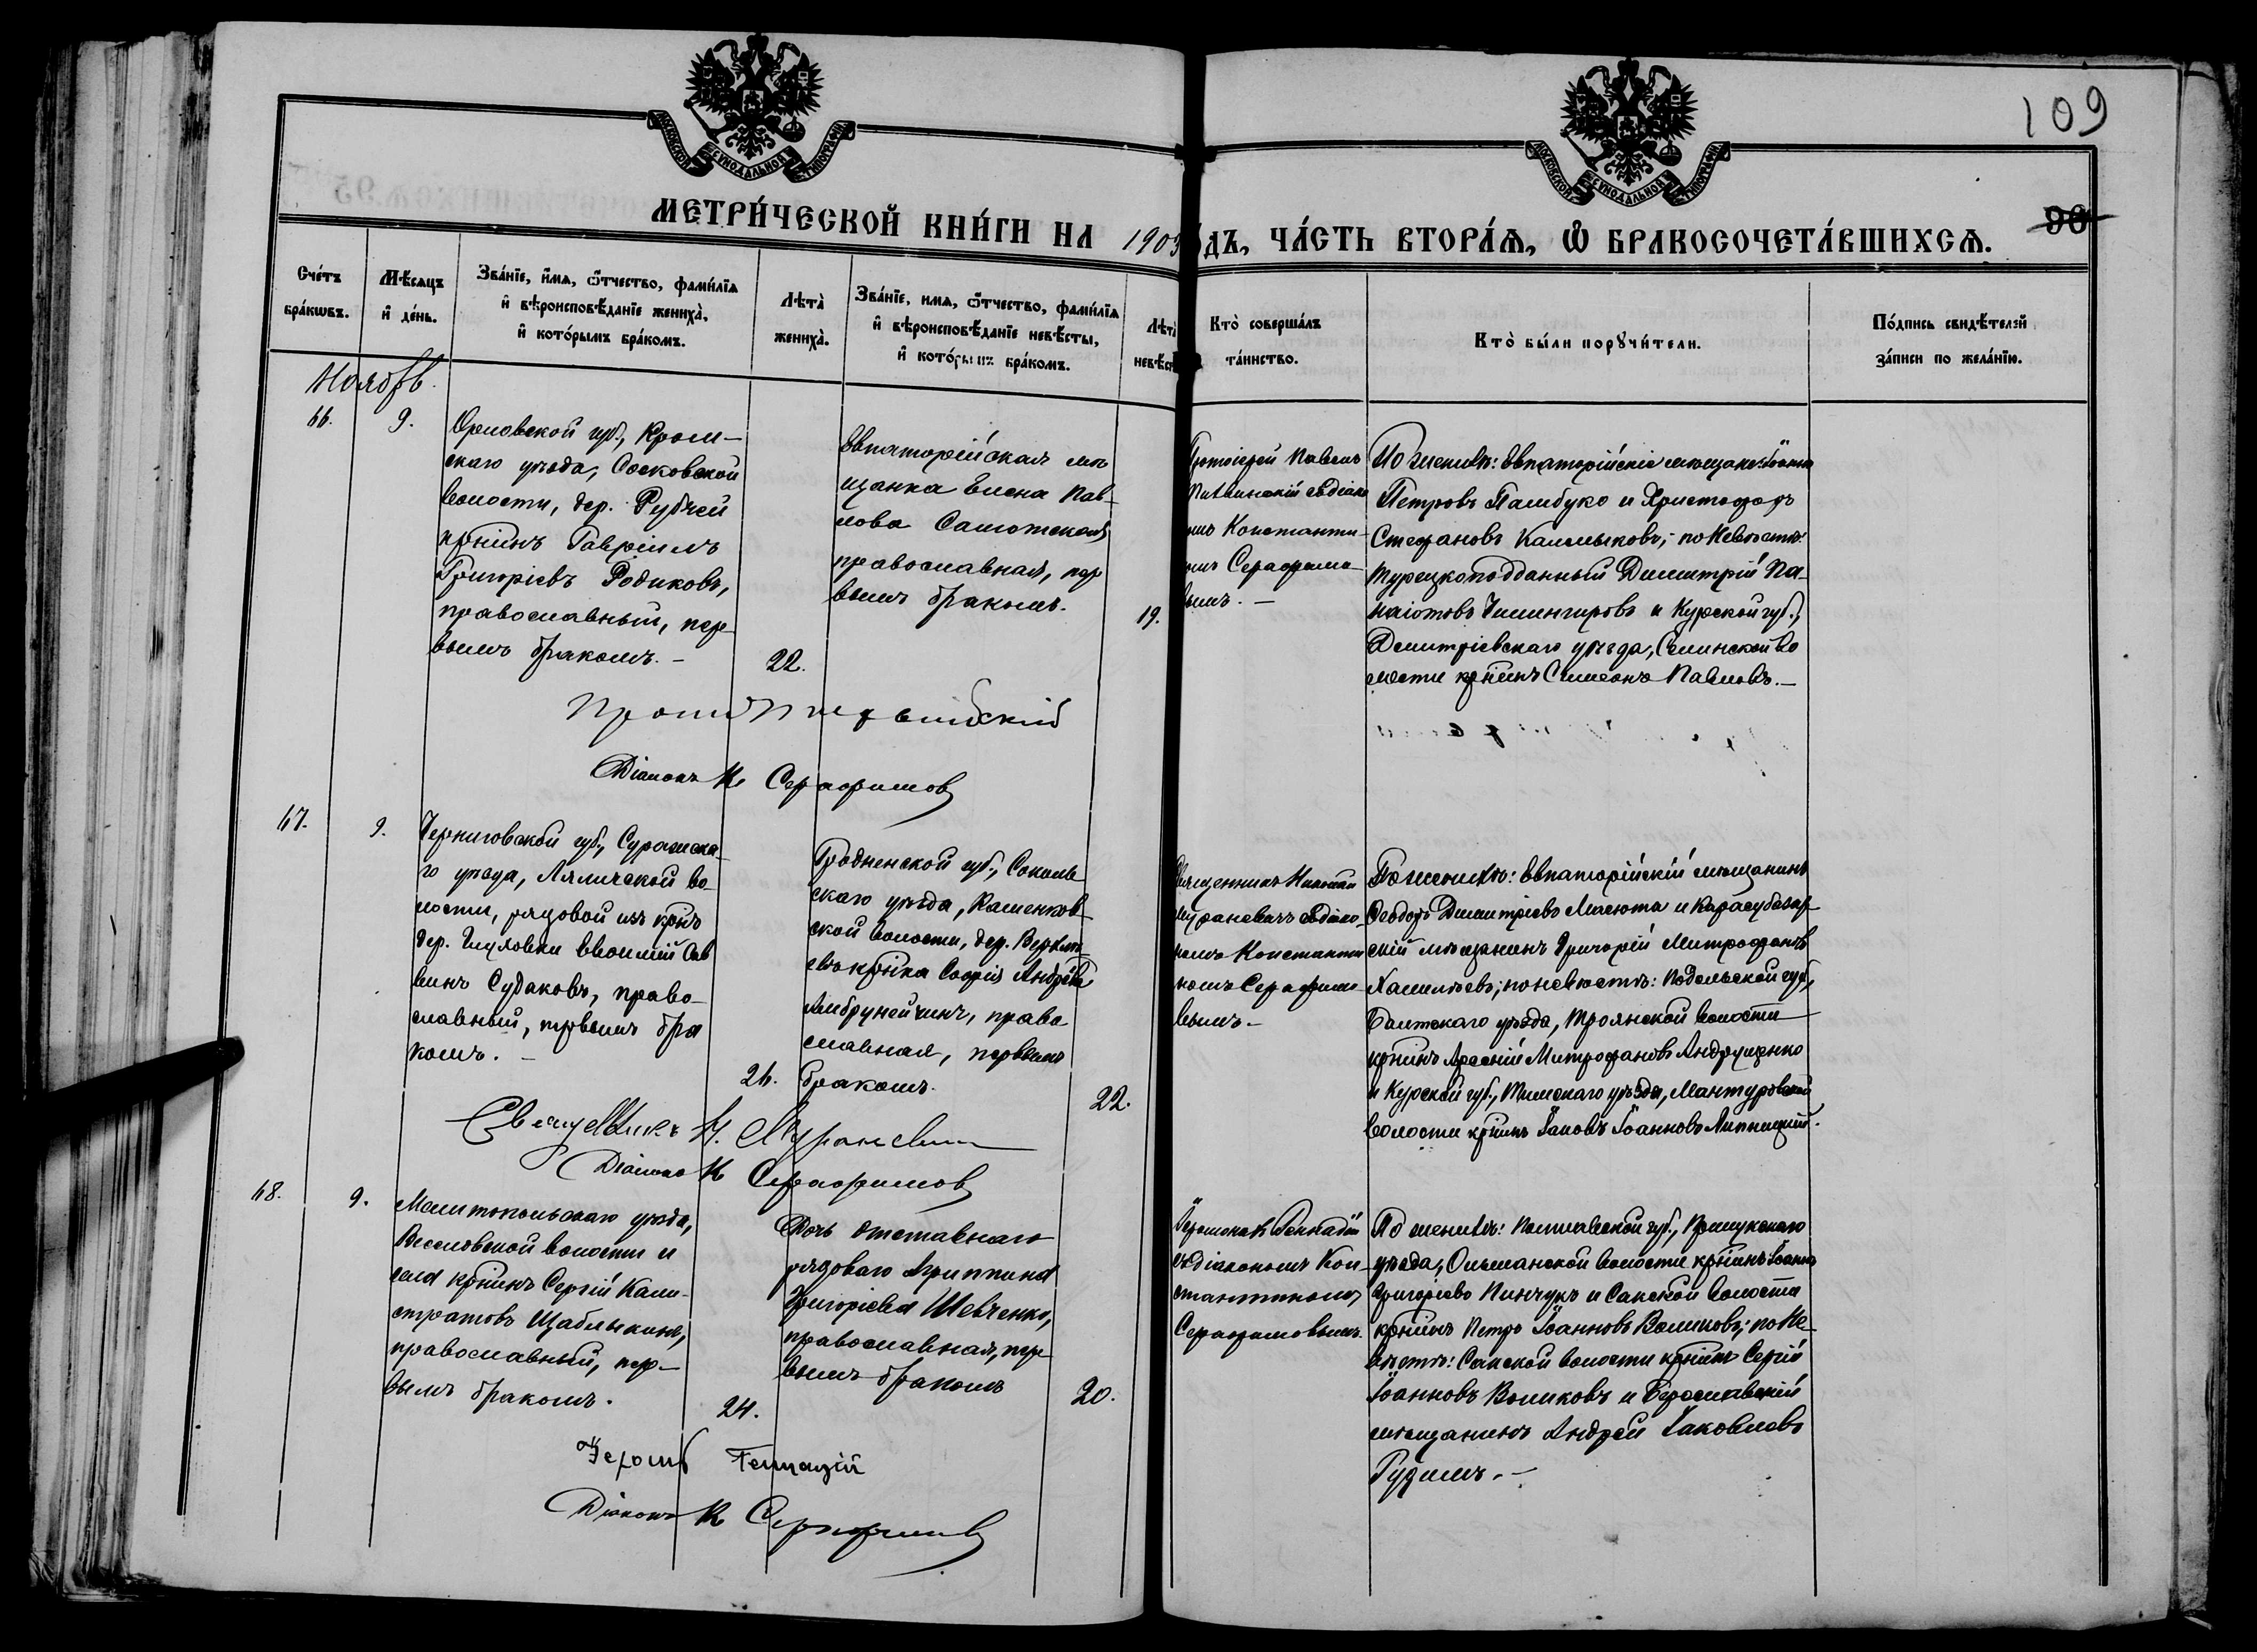 109
МОСКОВСКОЙ СѴНОДАЛЬНОЙ ТИПОГРАФІИ
МОСКОВСКОЙ СѴНОДАЛЬНОЙ ТИПОГРАФІИ
МЕТРИ́ЧЕСКОЙ КНИ́ГИ НА 1903 ДЪ, ЧА́СТЬ ВТОРА́Я, Ѿ БРАКОСОЧЕТА́ВШИХСЯ.
90
Сче́тъ
бра́кѡвъ.
Мѣ́сяцъ
и҆ де́нь.
Зва́нїе, и҆́мя, ѻ҆́тчество, фами́лїя
и҆ вѣроисповѣ́данїе жениха̀,
и҆ кото́рымъ бра́комъ.
Лѣта̀
жениха̀.
Зва́нїе, имя, ѻ҆́тчество, фами́лїя
и҆ вѣроисповѣ́данїе невѣ́сты,
и҆ кото́рымъ бра́комъ.
Лѣта̀
невѣс
Кто̀ соверша́лъ
та́инство.
Кто̀ бы́ли порꙋчи́тели.
По́дпись свидѣ́телей
за́писи по жела́нїю.
Ноябрь.
66.
9.
Орловской губ., Кром-
скаго уѣзда, Сосковской
волости, дер. Рублей
крнинъ Гавріилъ
Григоріевъ Родиковъ,
православный, пер-
вымъ бракомъ. –
22.
Евпаторійская мѣ
щанка Елена Пав-
лова Самотская
православная, пер
вымъ бракомъ.
19.
Протоіерей Павелъ
съ діако
номъ Константи-
номъ Серафимо-
вымъ. –
По женихѣ: Евпаторійскіе мѣщане: Іоаннъ
Петровъ Памбуко и Христофоръ
Стефановъ Калмыковъ; по невѣстѣ:
турецкоподданный Димитрій Па-
наіотовъ Чилингировъ и Курской губ.,
Дмитріевскаго уѣзда, Селинской во
лости крнинъ Симеонъ Павловъ. –
Діаконъ К Серафимовъ
67.
9.
Черниговской губ., Суражска-
го уѣзда, Ляличской во-
лости, рядовой изъ крнъ
дер. Глуховки Евѳимій Сав
винъ Судаковъ, право-
славный, первымъ бра
комъ. –
26.
Гродненской губ., Соколь
скаго уѣзда, Каменков-
ской волости, дер.
крнка Софія Андреева
православ
славная, первымъ
бракомъ.
22.
Священникъ Николай
Мураневичъ съ діако
номъ Константи
номъ Серафимо-
вымъ –
По женихѣ: Евпаторійскій мѣщанинъ
Ѳеодоръ Димитріевъ Масюта и Карасубазар-
скій мѣщанинъ Григорій Митрофановъ
по невѣстѣ: Подольской губ.,
Балтскаго уѣзда, Троянской волости
крнинъ Арсеній Митрофановъ Андрущенко
и Курской губ., Тимскаго уѣзда, Мантуровской
волости крнинъ Іаковъ Іоанновъ Липницкій.
Священникъ Н. Мураневичъ
Діаконъ К Серафимовъ
68.
9.
Мелитопольскаго уѣзда,
Веселовской волости и
села крнинъ Сергій Кали-
стратовъ Щаблыкинъ,
православный, пер-
вымъ бракомъ.
24.
Дочь отставнаго
рядоваго Агриппина
Григоріева Шевченко,
православная, пер
вымъ бракомъ
20.
Іеромонахъ Геннадій
съ діакономъ Кон-
стантиномъ
Серафимовымъ.
По женихѣ: Полтавской губ., Прилукскаго
уѣзда, Ольшанской волости крнинъ Іоаннъ
Григоріевъ Пинчукъ и Сакской волости
крнинъ Петръ Іоанновъ Воликовъ; по не-
вѣстѣ: Сакской волости крнинъ Сергій
Іоанновъ Воликовъ и Бериславскій
мѣщанинъ Андрей Іаковлевъ
Гудимъ. –
Іером Геннадій
Діаконъ К Серафимовъ